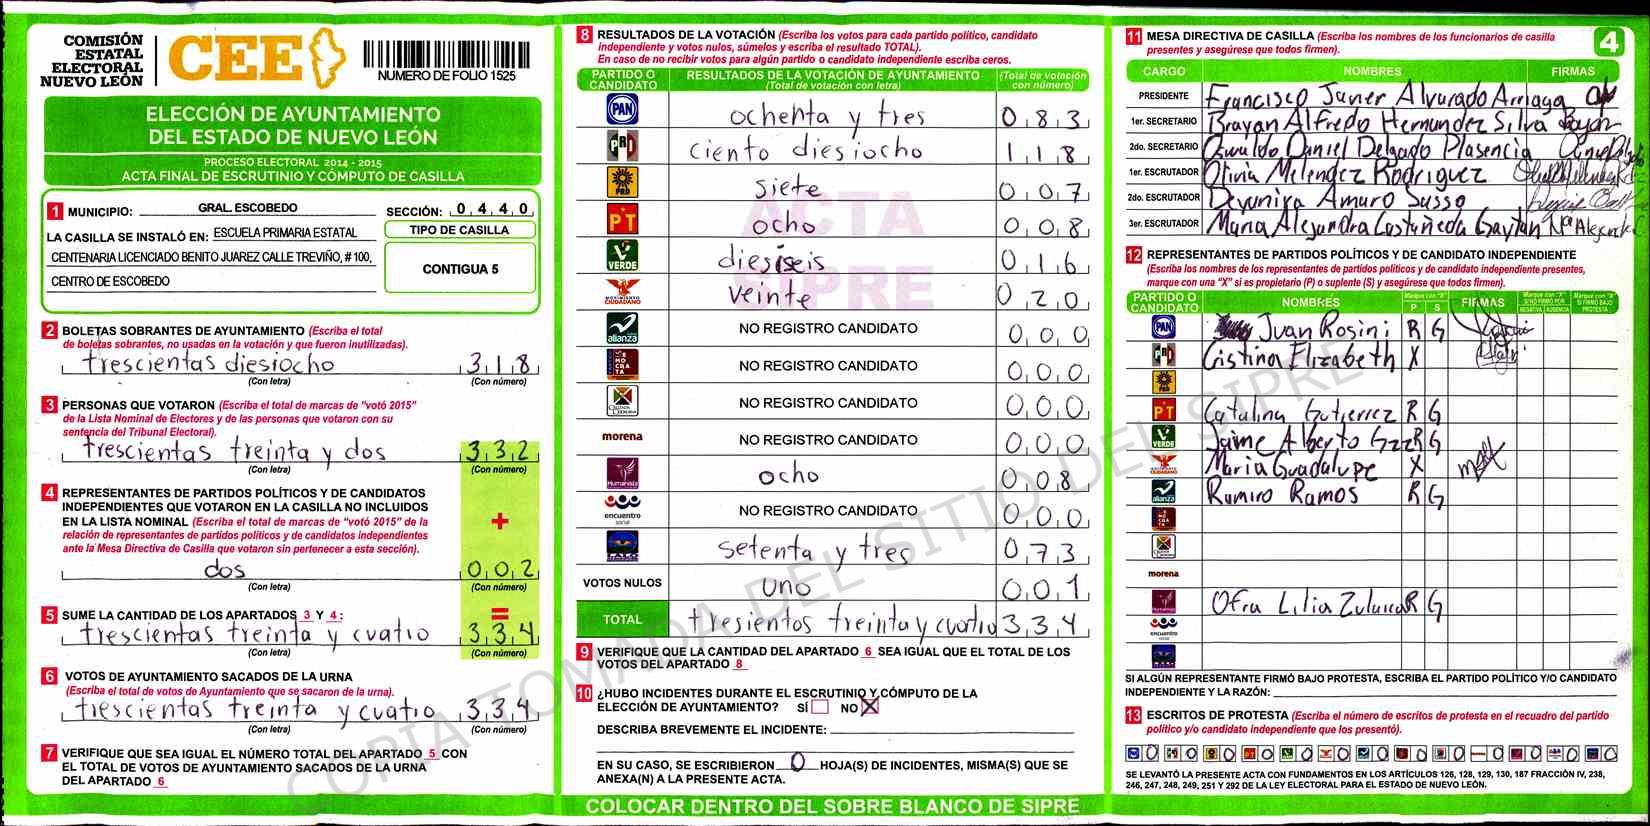 COMISIÓN
ESTATAL
ELECTORAL
NUEVO LEÓN
CEE
NUMERO DE FOLIO 1525
ELECCIÓN DE AYUNTAMIENTO
DEL ESTADO DE NUEVO LEÓN
PROCESO ELECTORAL 2014 - 2015
ACTA FINAL DE ESCRUTINIO Y CÓMPUTO DE CASILLA
1 MUNICIPIO: GRAL. ESCOBEDO SECCIÓN: 0 4 4 0
LA CASILLA SE INSTALÓ EN: ESCUELA PRIMARIA ESTATAL
CENTENARIA LICENCIADO BENITO JUAREZ CALLE TREVIÑO, # 100,
CENTRO DE ESCOBEDO
TIPO DE CASILLA
CONTIGUA 5
2 BOLETAS SOBRANTES DE AYUNTAMIENTO (Escriba el total
de boletas sobrantes, no usadas en la votación y que fueron inutilizadas).
trescientas diesiocho 3 1 8
(Con letra) (Con número)
3 PERSONAS QUE VOTARON (Escriba el total de marcas de "votó 2015"
de la Lista Nominal de Electores y de las personas que votaron con su
sentencia del Tribunal Electoral).
trescientas treinta y dos 3 3 2
(Con letra) (Con número)
4 REPRESENTANTES DE PARTIDOS POLÍTICOS Y DE CANDIDATOS
INDEPENDIENTES QUE VOTARON EN LA CASILLA NO INCLUIDOS
EN LA LISTA NOMINAL (Escriba el total de marcas de "votó 2015" de la
relación de representantes de partidos políticos y de candidatos independientes
ante la Mesa Directiva de Casilla que votaron sin pertenecer a esta sección).
+
dos 0 0 2
(Con letra) (Con número)
5 SUME LA CANTIDAD DE LOS APARTADOS 3 Y 4: =
trescientas treinta y cuatro 3 3 4
(Con letra) (Con número)
6 VOTOS DE AYUNTAMIENTO SACADOS DE LA URNA
(Escriba el total de votos de Ayuntamiento que se sacaron de la urna).
trescientas treinta y cuatro 3 3 4
(Con letra) (Con número)
7 VERIFIQUE QUE SEA IGUAL EL NÚMERO TOTAL DEL APARTADO 5 CON
EL TOTAL DE VOTOS DE AYUNTAMIENTO SACADOS DE LA URNA
DEL APARTADO 6
8 RESULTADOS DE LA VOTACIÓN (Escriba los votos para cada partido político, candidato
independiente y votos nulos, súmelos y escriba el resultado TOTAL).
En caso de no recibir votos para algún partido o candidato independiente escriba ceros.
PARTIDO O CANDIDATO RESULTADOS DE LA VOTACIÓN DE AYUNTAMIENTO (Total de votación con letra) (Total de votación con número)
PAN ochenta y tres 0 8 3
PRI ciento diesiocho 1 1 8
PRD siete 0 0 7
PT ocho 0 0 8
VERDE diesiseis 0 1 6
MOVIMIENTO CIUDADANO veinte 0 2 0
alianza NO REGISTRO CANDIDATO 0 0 0
DEMOCRATA NO REGISTRO CANDIDATO 0 0 0
CRUZADA CIUDADANA NO REGISTRO CANDIDATO 0 0 0
morena NO REGISTRO CANDIDATO 0 0 0
Humanista ocho 0 0 8
encuentro social NO REGISTRO CANDIDATO 0 0 0
setenta y tres 0 7 3
VOTOS NULOS uno 0 0 1
TOTAL tresientos treinta y cuatro 3 3 4
ACTA
SIPRE
9 VERIFIQUE QUE LA CANTIDAD DEL APARTADO 6 SEA IGUAL QUE EL TOTAL DE LOS
VOTOS DEL APARTADO 8
10 ¿HUBO INCIDENTES DURANTE EL ESCRUTINIO Y CÓMPUTO DE LA
ELECCIÓN DE AYUNTAMIENTO? SÍ NO X
DESCRIBA BREVEMENTE EL INCIDENTE:
EN SU CASO, SE ESCRIBIERON 0 HOJA(S) DE INCIDENTES, MISMA(S) QUE SE
ANEXA(N) A LA PRESENTE ACTA.
COLOCAR DENTRO DEL SOBRE BLANCO DE SIPRE
COPIA TOMADA DEL SITIO DEL SIPRE
11 MESA DIRECTIVA DE CASILLA (Escriba los nombres de los funcionarios de casilla
presentes y asegúrese que todos firmen).
4
CARGO NOMBRES FIRMAS
PRESIDENTE Francisco Javier Alvarado Arriaga
1er. SECRETARIO Brayan Alfredo Hernandez Silva
2do. SECRETARIO Oswaldo Daniel Delgado Plasencia
1er. ESCRUTADOR Olivia Melendez Rodriguez
2do. ESCRUTADOR Deyanira Amaro Sasso
3er. ESCRUTADOR Maria Alejandra Castañeda Gaytan Ma Alejandra
12 REPRESENTANTES DE PARTIDOS POLÍTICOS Y DE CANDIDATO INDEPENDIENTE
(Escriba los nombres de los representantes de partidos políticos y de candidato independiente presentes,
marque con una "X" si es propietario (P) o suplente (S) y asegúrese que todos firmen).
PARTIDO O CANDIDATO NOMBRES Marque con "X" P S FIRMAS Marque con "X" SI NO FIRMÓ POR NEGATIVA AUSENCIA Marque con "X" SI FIRMÓ BAJO PROTESTA
PAN Juan Rosini R G
PRI Cristina Elizabeth X
PRD
PT Catalina Gutierrez R G
VERDE Jaime Alberto Gzz R G
MOVIMIENTO CIUDADANO Maria Guadalupe X
alianza Ramiro Ramos R G
morena
Humanista Ofra Lilia R G
encuentro social
SI ALGÚN REPRESENTANTE FIRMÓ BAJO PROTESTA, ESCRIBA EL PARTIDO POLÍTICO Y/O CANDIDATO
INDEPENDIENTE Y LA RAZÓN:
13 ESCRITOS DE PROTESTA (Escriba el número de escritos de protesta en el recuadro del partido
político y/o candidato independiente que los presentó).
0 0 0 0 0 0 0 0 0 0 0 0 0
SE LEVANTÓ LA PRESENTE ACTA CON FUNDAMENTOS EN LOS ARTÍCULOS 126, 128, 129, 130, 187 FRACCIÓN IV, 238,
246, 247, 248, 249, 251 Y 292 DE LA LEY ELECTORAL PARA EL ESTADO DE NUEVO LEÓN.